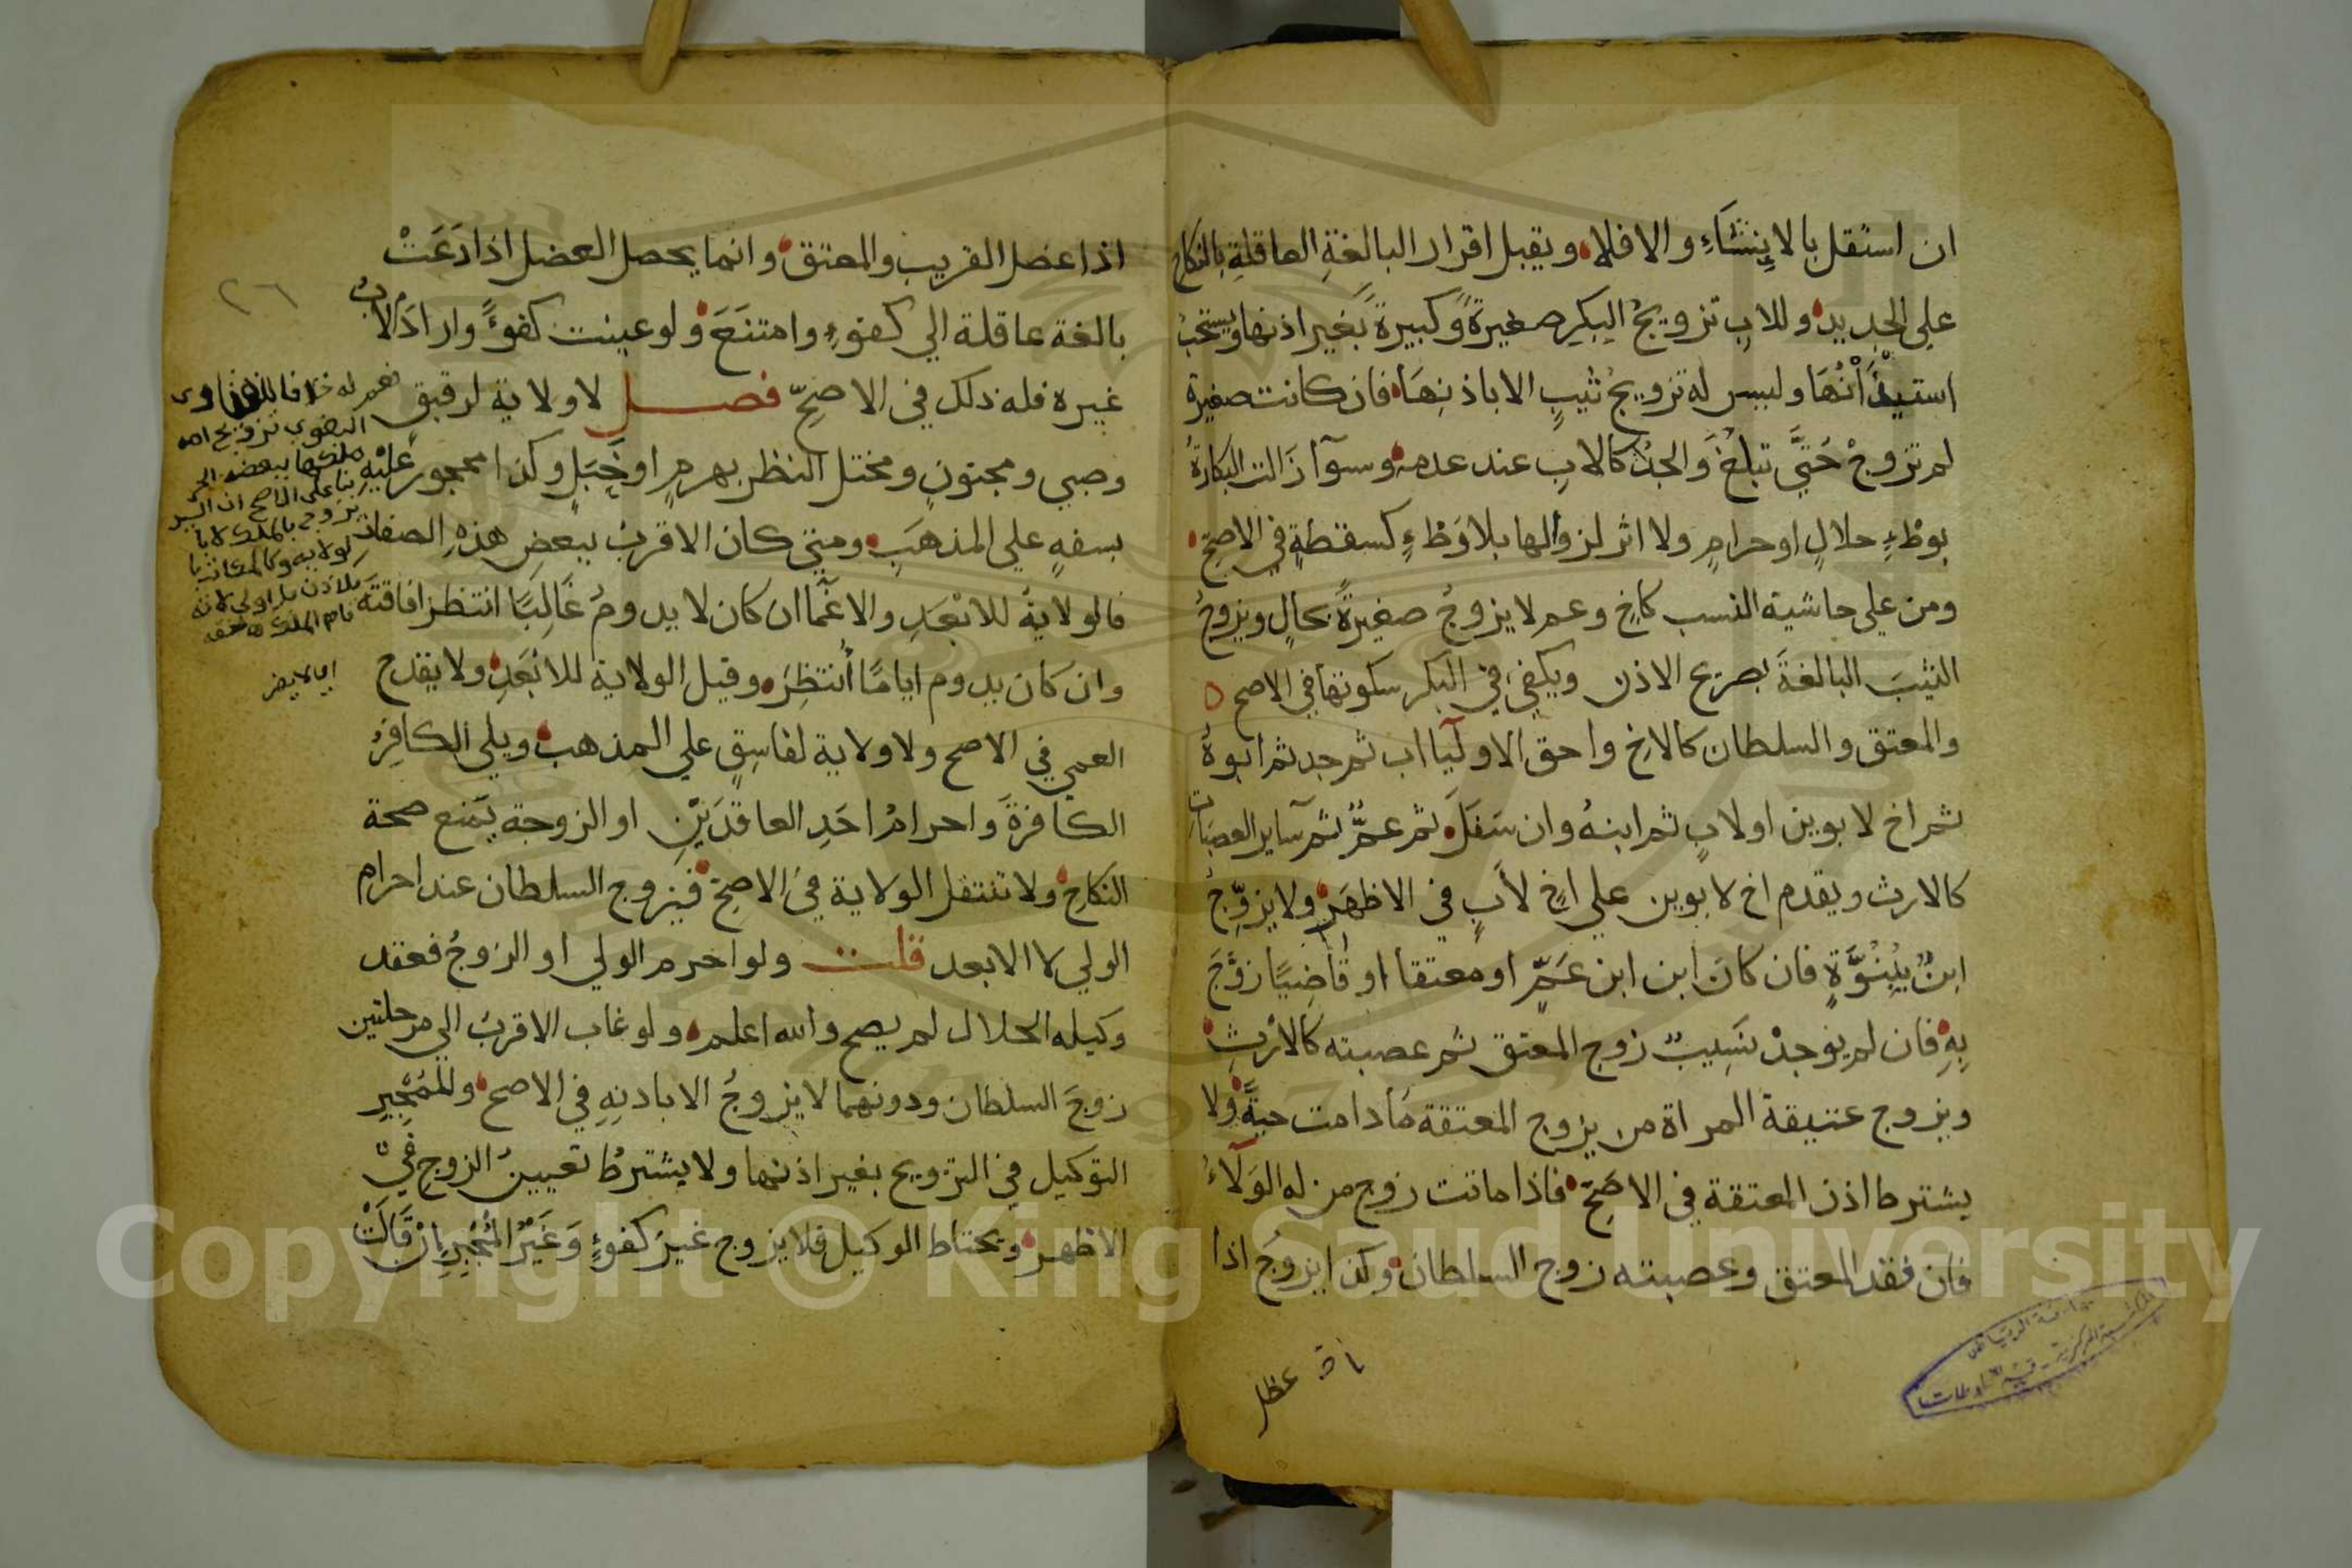 ان استقل بالاِنِشَآءِ والا فلا ويقبل اقرار البالغةِ العاقلةِ بالنكاح
علي الجديد وللابِ تزويجُ البِكرِ صغيرةً وكبيرةً بغير اذنها ويستحب
استيذَانُهَا وليس له تزويجُ ثيبٍ الا باذنِهَا فان كانت صغيرة
لم تزوجْ حَتَّي تبلغَ وَالجدُّ كالابِ عند عدمه وسوآ زَالت البكارةُ
بوطْءٍ حلالٍ او حرامٍ ولا اثر لزوالها بلا وَطْءٍ كسقطةٍ في الاصحِّ
ومن علي حاشية النسب كاخٍ وعم لا يزوجُ صغيرةً بحالٍ ويزوجُ
الثيبَ البالغةَ بصريح الاذن ويكفي في البكر سكوتها في الاصح
والمعتق والسلطان كالاخِ واحق الاوليآ اب ثم جد ثم ابوهُ
ثم اخ لابوين او لابٍ ثم ابنهُ وان سَفَلَ ثم عمٌّ ثم سآير العصباتِ
كالارث ويقدم اخ لابوين علي اخٍ لأبٍ في الاظهَرِ ولا يزوِّجُ
ابنٌ بِبُنُوَّةٍ فان كانَ ابن ابن عَمٍّ او معتقا او قاضِيًا زوَّجَ
بِهِ فان لم يوجدْ نَسِيبٌ زوج المعتق ثم عصبته كالارْثِ
ويزوج عتيقة المراة من يزوج المعتقة مَا دامت حيةً ولا
يشترط اذن المعتقة في الاصَحِّ فاذا ماتت زوج من له الوَلآءُ
فان فقد المعتق وعصبته زوج السلطان وكذا يزوجُ اذا
اذا عضل القريب والمعتق وانما يحصل العضل اذا دَعَتْ
بالغة عاقلة الي كفوءٍ وامتنَعَ ولو عينت كفوءًا واراد الابُ
غيره فله ذلك في الاصحِّ فصل لا ولاية لرقيق
وصبي ومجنونٍ ومختل النظر بهرمٍ او خَبَلٍ وكذا محجور عَلَيْهِ
بسفهٍ علي المذهَبِ ومتي كان الاقربُ ببعضِ هذهِ الصفات
فالولايةُ للابْعَدِ والاغمآ ان كان لا يدومُ غَالِبًا انتظر افاقتهُ
وان كان يدوم ايامًا أُنتظِرَ وقيل الولاية للابْعَدِ ولا يقدح
العمي في الاصح ولا ولاية لفاسِقٍ علي المذهب ويلي الكافِرُ
الكافرةَ واحرامُ احَدِ العاقدَيْنِ او الزوجة يَمنع صحة
النكاحِ ولا تنتقل الولاية في الاصحِّ فيزوج السلطان عند احرام
الولي لا الابعد قلت ولو احرم الولي او الزوجُ فعقد
وكيله الحلال لم يصح والله اعلم ولو غاب الاقربُ الي مرحلتين
زوجَ السلطان ودونهما لا يزوجُ الا باذنِهِ في الاصح وللمُجْبِرِ
التوكيل في التزويج بغير اذنها ولا يشترطُ تعيينُ الزوج في
الاظهر ويحتاط الوكيل فلا يزوج غيرَ كفوءٍ وَغَيْرُ المُجْبِرِ اِنْ قَالَتْ
٢٦
نعم له خلافا
البغوي تزويج امه
ملكها ببعضه الحر
بنا علي الاصح ان السيد
يزوج بالملك لا با
لولاية وكالمكاتب
بالاذن بل اولي لانه
تام الملك
اي لا يضر
Copyright © King Saud University
1957